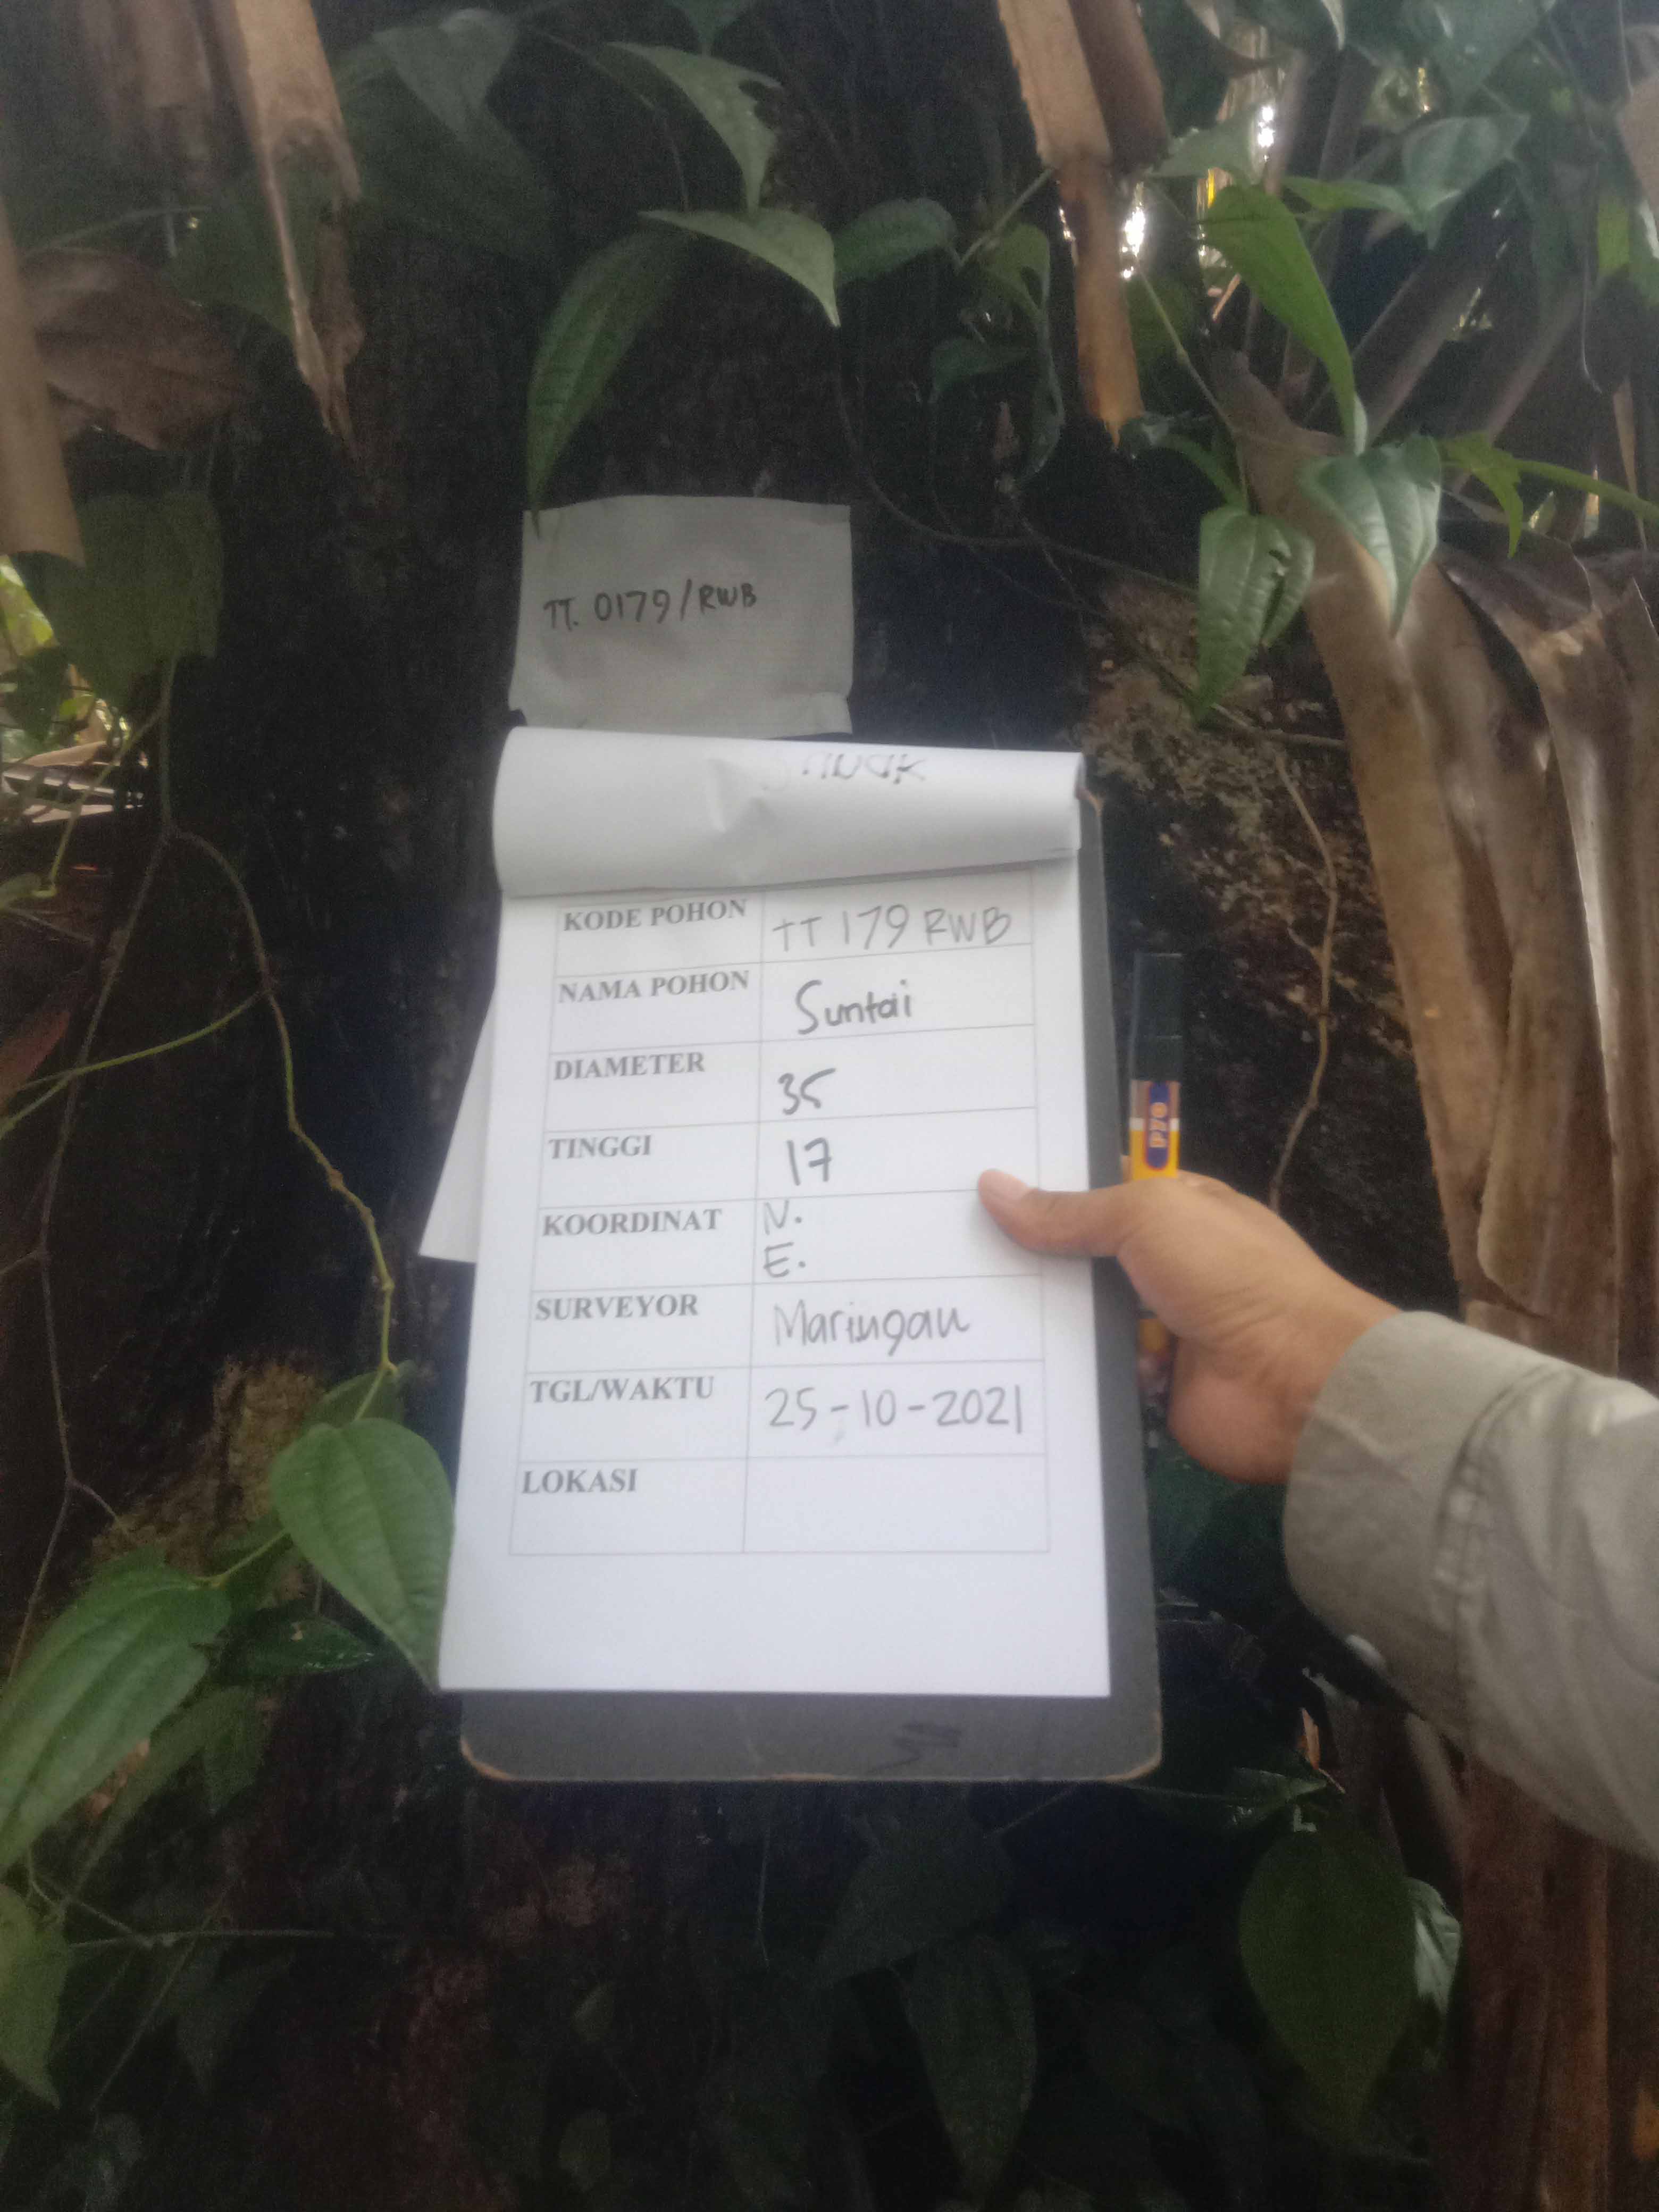 TT. 0179/RWB
KODE POHON TT 179 RWB
NAMA POHON Suntai
DIAMETER 35
TINGGI 17
KOORDINAT N.
E.
SURVEYOR Maringan
TGL/WAKTU 25-10-2021
LOKASI
PRO